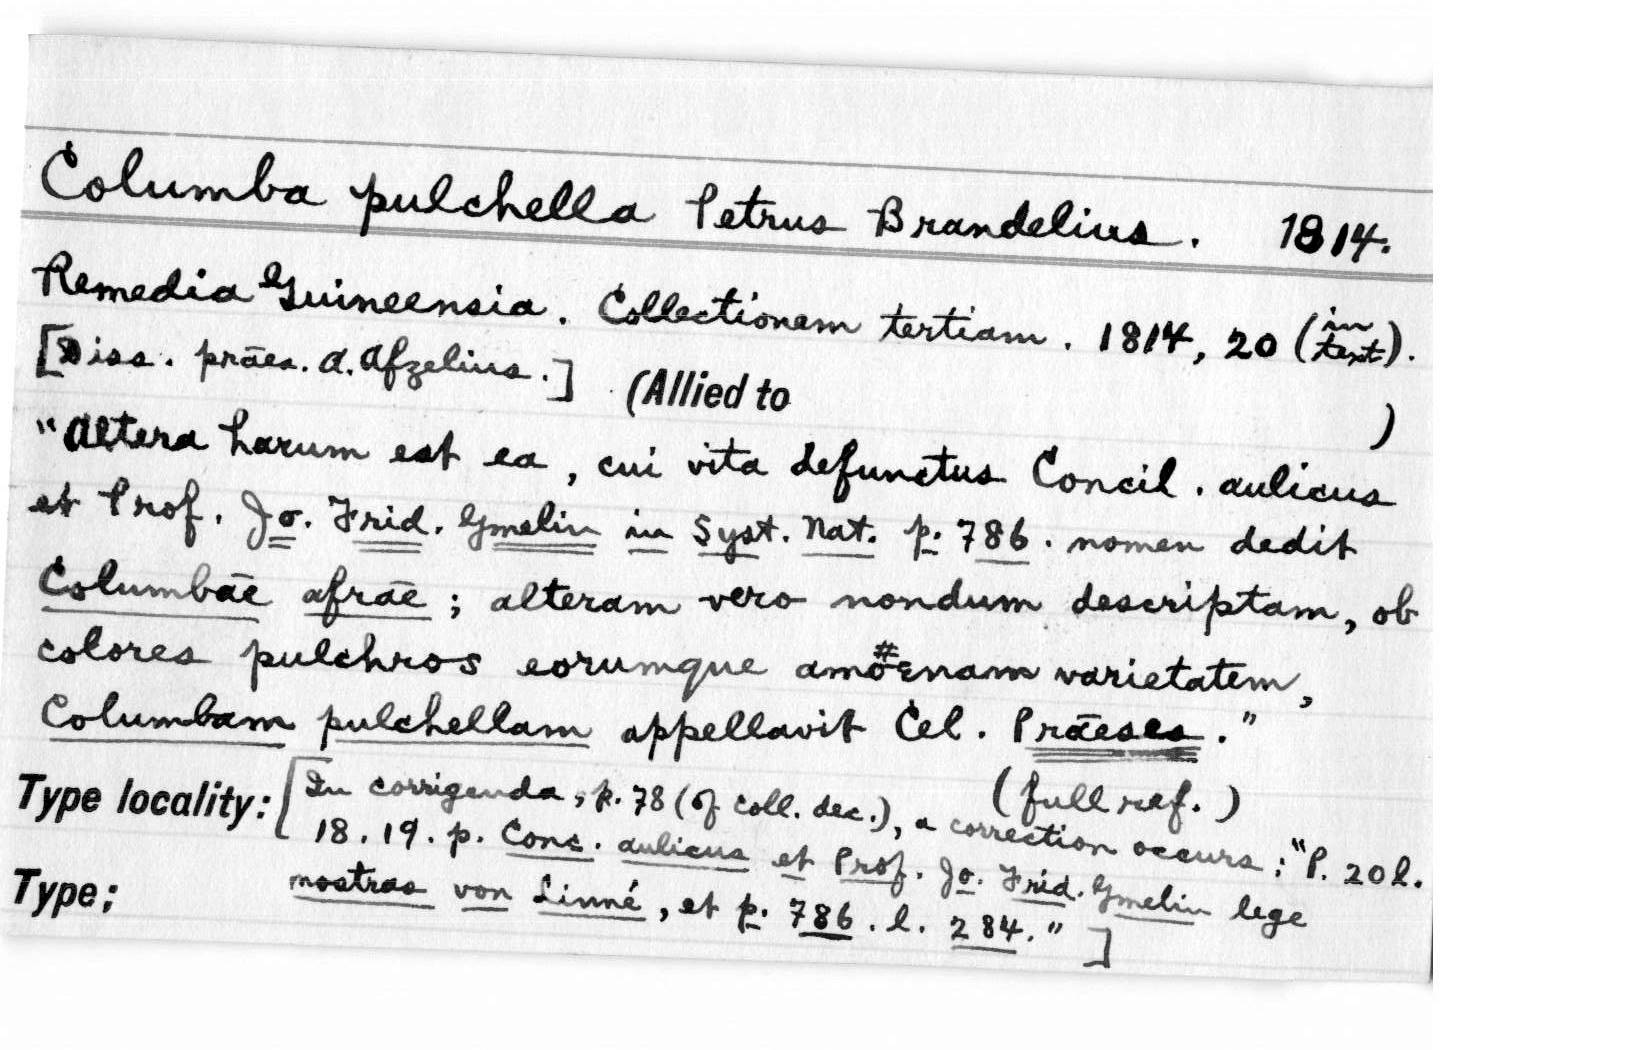 Columba pulchella Petrus Brandelius. 1814.
Remedia Guineensia. Collectionem tertiam. 1814, 20 (in text).
[Diss. prāes. A. Afzelius.] (Allied to )
"Altera harum est ea, cui vita defunctus Concil. aulicus
et Prof. Jo. Frid. Gmelin in Syst. Nat. p. 786. nomen dedit
Columbāe afrāe; alteram vero nondum descriptam, ob
colores pulchros eorumque amōenam varietatem,
Columbam pulchellam appellavit Cel. Prāeses."
Type locality: [In corrigenda, p. 78 (of coll. dec.), (full ref.) a correction occurs: "P. 20 l.
18. 19. p. Conc. aulicus et Prof. Jo. Frid. Gmelin lege
Type; nostras von Linné, et p. 786. l. 284." ]